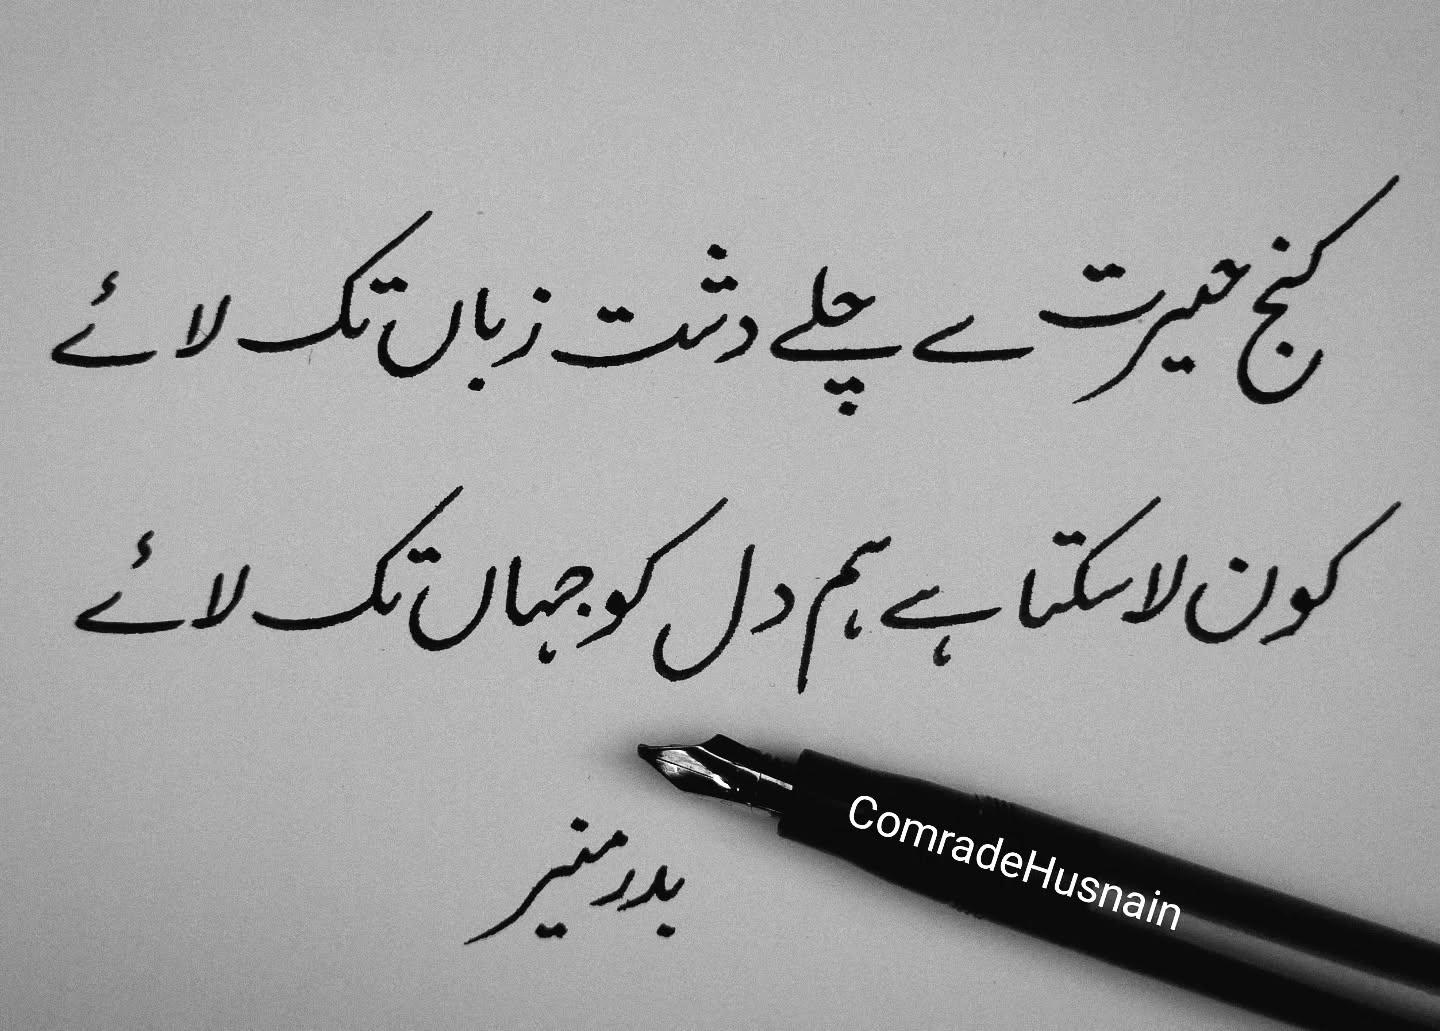 کنج حیرت سے چلے دشت زباں تک لائے
کون لا سکتا ہے ہم دل کو جہاں تک لائے
بدر منیر
ComradeHusnain